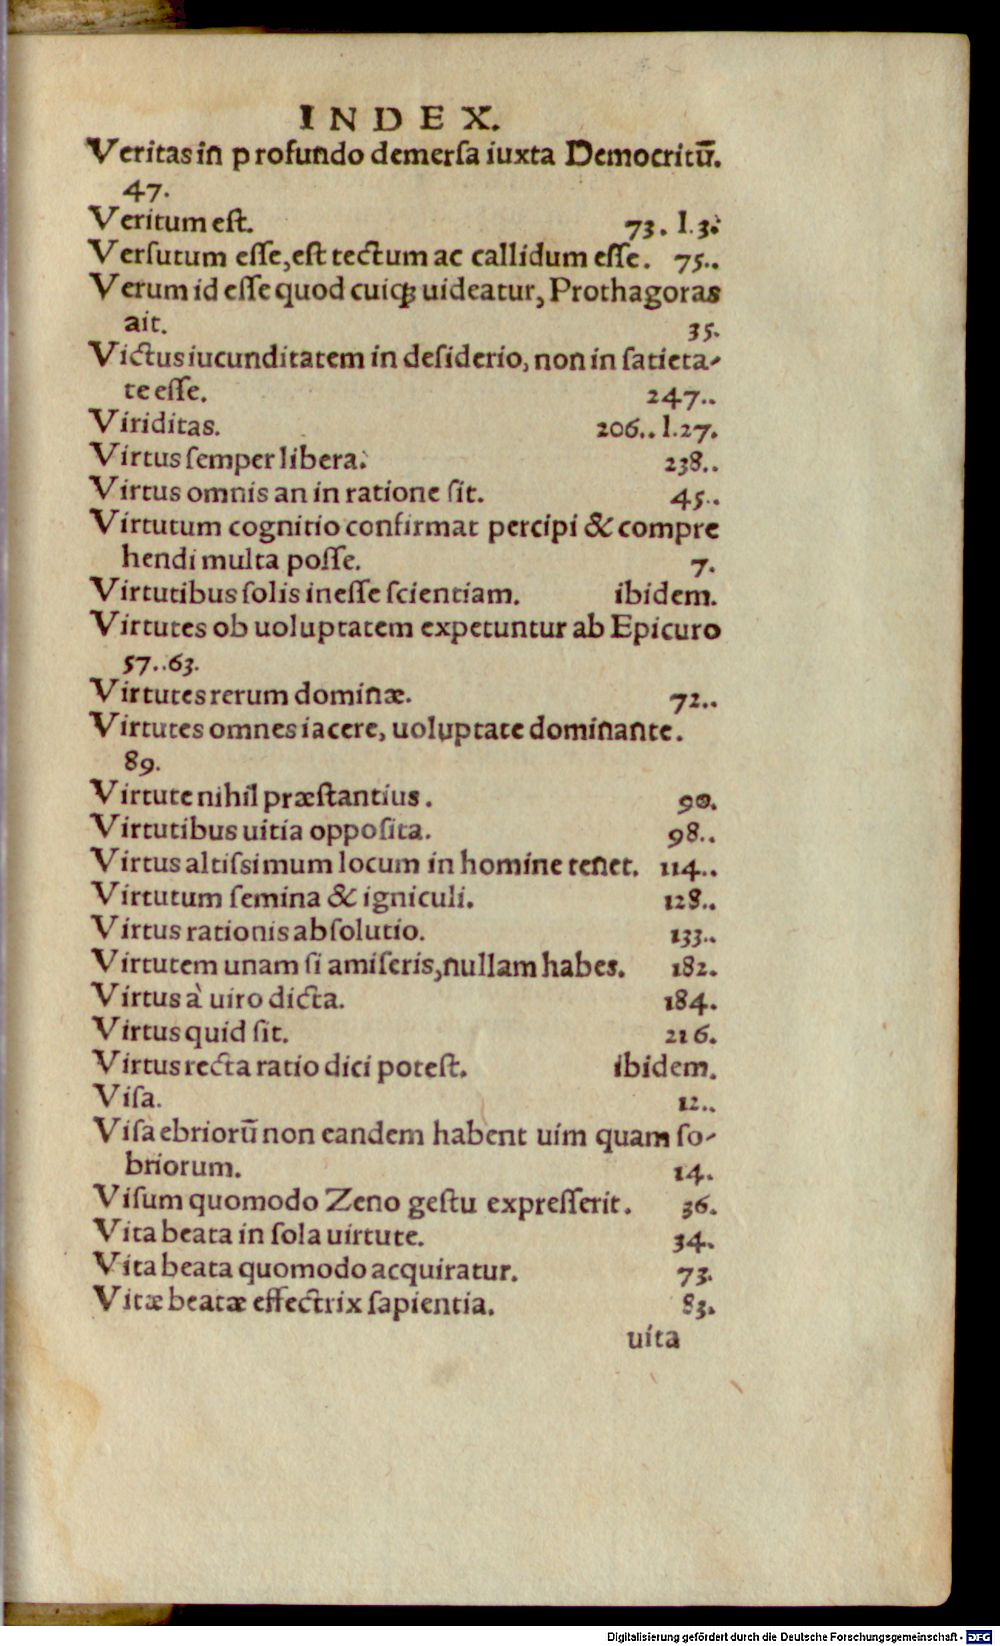 INDEX.
Veritas in profundo demerſa iuxta Democritū.
47.
Veritum eſt. 73. l.3.
Verſutum eſſe, eſt tectum ac callidum eſſe. 75..
Verum id eſſe quod cuiqꝫ uideatur, Prothagoras
ait. 35.
Victus iucunditatem in deſiderio, non in ſatieta-
te eſſe. 247..
Viriditas. 206.. l.27.
Virtus ſemper libera. 238..
Virtus omnis an in ratione ſit. 45..
Virtutum cognitio confirmat percipi & compre
hendi multa poſſe. 7.
Virtutibus ſolis ineſſe ſcientiam. ibidem.
Virtutes ob uoluptatem expetuntur ab Epicuro
57..63.
Virtutes rerum dominæ. 72..
Virtutes omnes iacere, uoluptate dominante.
89.
Virtute nihil præſtantius. 90.
Virtutibus uitia oppoſita. 98..
Virtus altiſsimum locum in homine tenet. 114..
Virtutum ſemina & igniculi. 128..
Virtus rationis abſolutio. 133..
Virtutem unam ſi amiſeris, nullam habes. 182.
Virtus à uiro dicta. 184.
Virtus quid ſit. 216.
Virtus recta ratio dici poteſt. ibidem.
Viſa. 12..
Viſa ebriorū non eandem habent uim quam ſo-
briorum. 14.
Viſum quomodo Zeno geſtu expreſſerit. 36.
Vita beata in ſola uirtute. 34.
Vita beata quomodo acquiratur. 73.
Vitæ beatæ effectrix ſapientia. 83.
uita
Digitalisierung gefördert durch die Deutsche Forschungsgemeinschaft - DFG